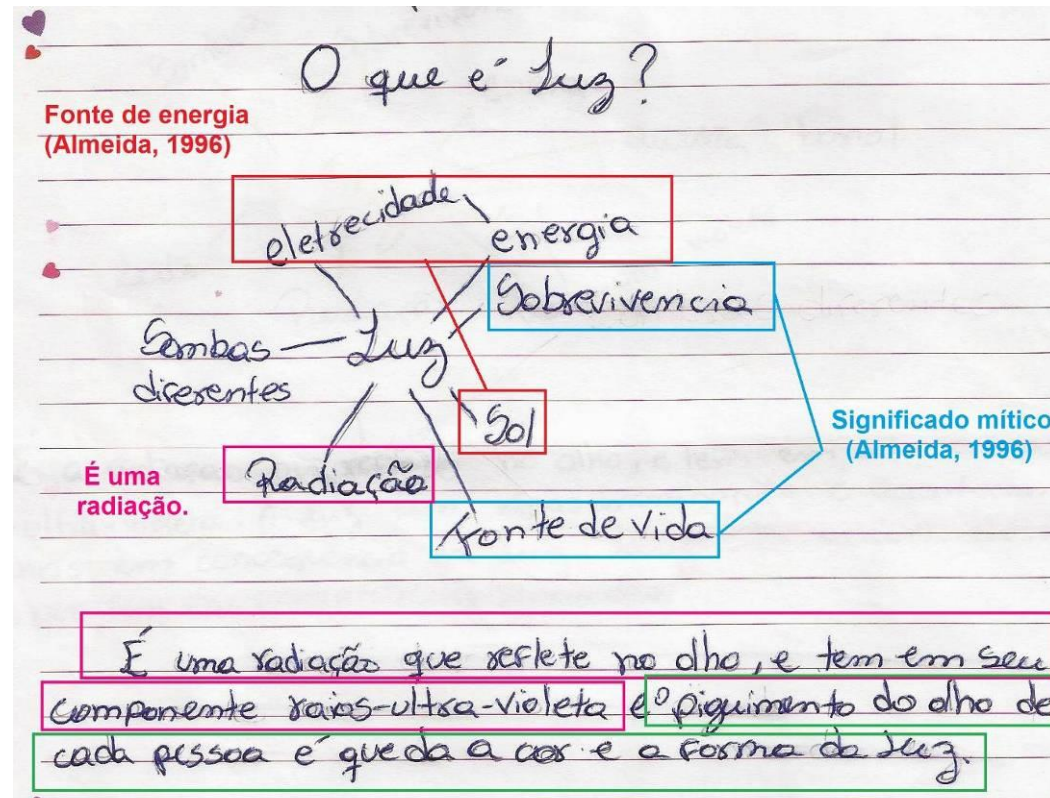 O que é Luz?
Fonte de energia
(Almeida, 1996)
eletrecidade
energia
Sobrevivencia
Sombas — Luz
diferentes
Sol
Significado mítico
(Almeida, 1996)
É uma
radiação.
Radiação
Fonte de vida
É uma radiação que reflete no olho, e tem em seu
componente raios-ultra-violeta e o piguimento do olho de
cada pessoa é que da a cor e a forma da Luz.